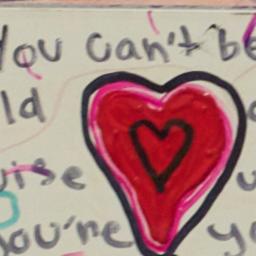 You can't be
ld
ise
you're yo